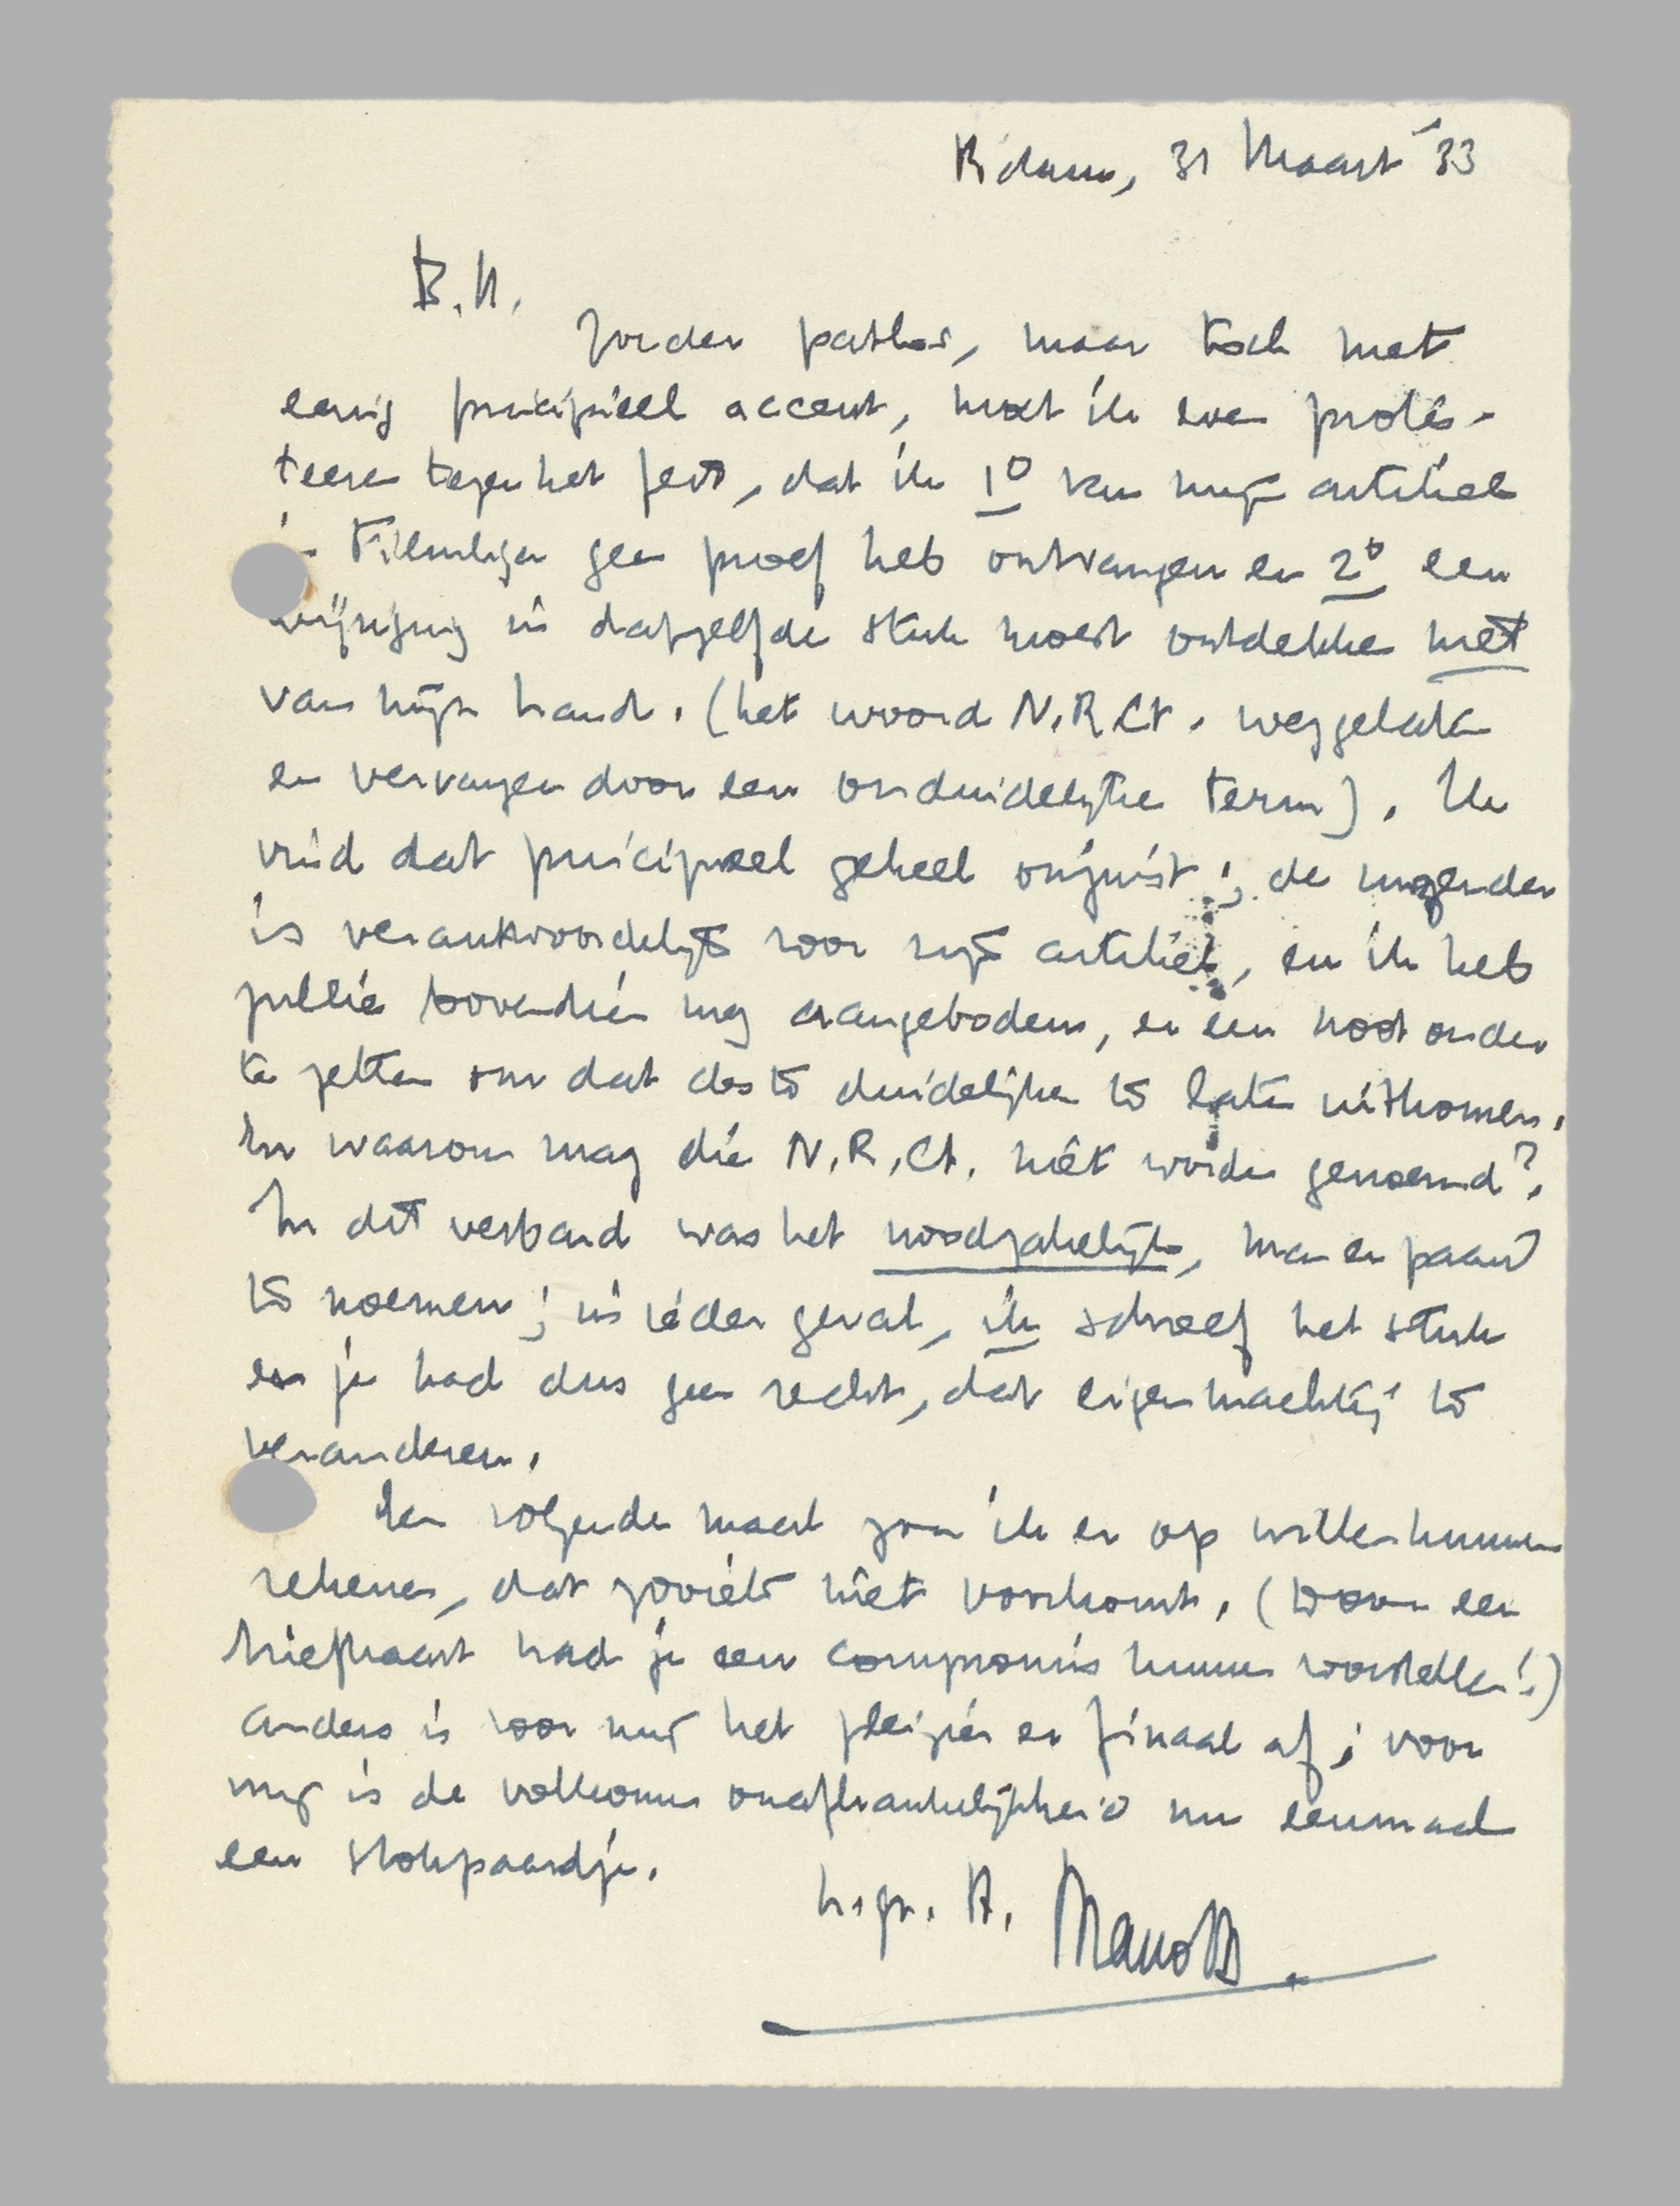 R'dam, 31 Maart '33
B. H.
Zonder pathos, maar toch met
eenig principieel accent, moet ik even protes-
teeren tegen het feit, dat ik 1º van mijn artikel
in Filmliga geen proef heb ontvangen en 2º een
wijziging in datzelfde stuk moest ontdekken niet
van mijn hand. (het woord N.R.Ct. weggelaten
en vervangen door een onduidelijke term). Ik
vind dat principieel geheel onjuist; de inzender
is verantwoordelijk voor zijn artikel, en ik heb
jullie bovendien nog aangeboden, er een noot onder
te zetten om dat des te duidelijker te laten uitkomen.
En waarom mag die N.R.Ct. niet worden genoemd?
In dit verband was het noodzakelijk, man en paard
te noemen; in ieder geval, ik schreef het stuk
en je had dus geen recht, dat eigenmachtig te
veranderen.
Een volgende maal zou ik er op willen kunnen
rekenen, dat zooiets niet voorkomt. (Door een
briefkaart had je een compromis kunnen voorstellen!)
Anders is voor mij het plezier er finaal af; voor
mij is de volkomen onafhankelijkheid nu eenmaal
een stokpaardje.
h. gr. A.